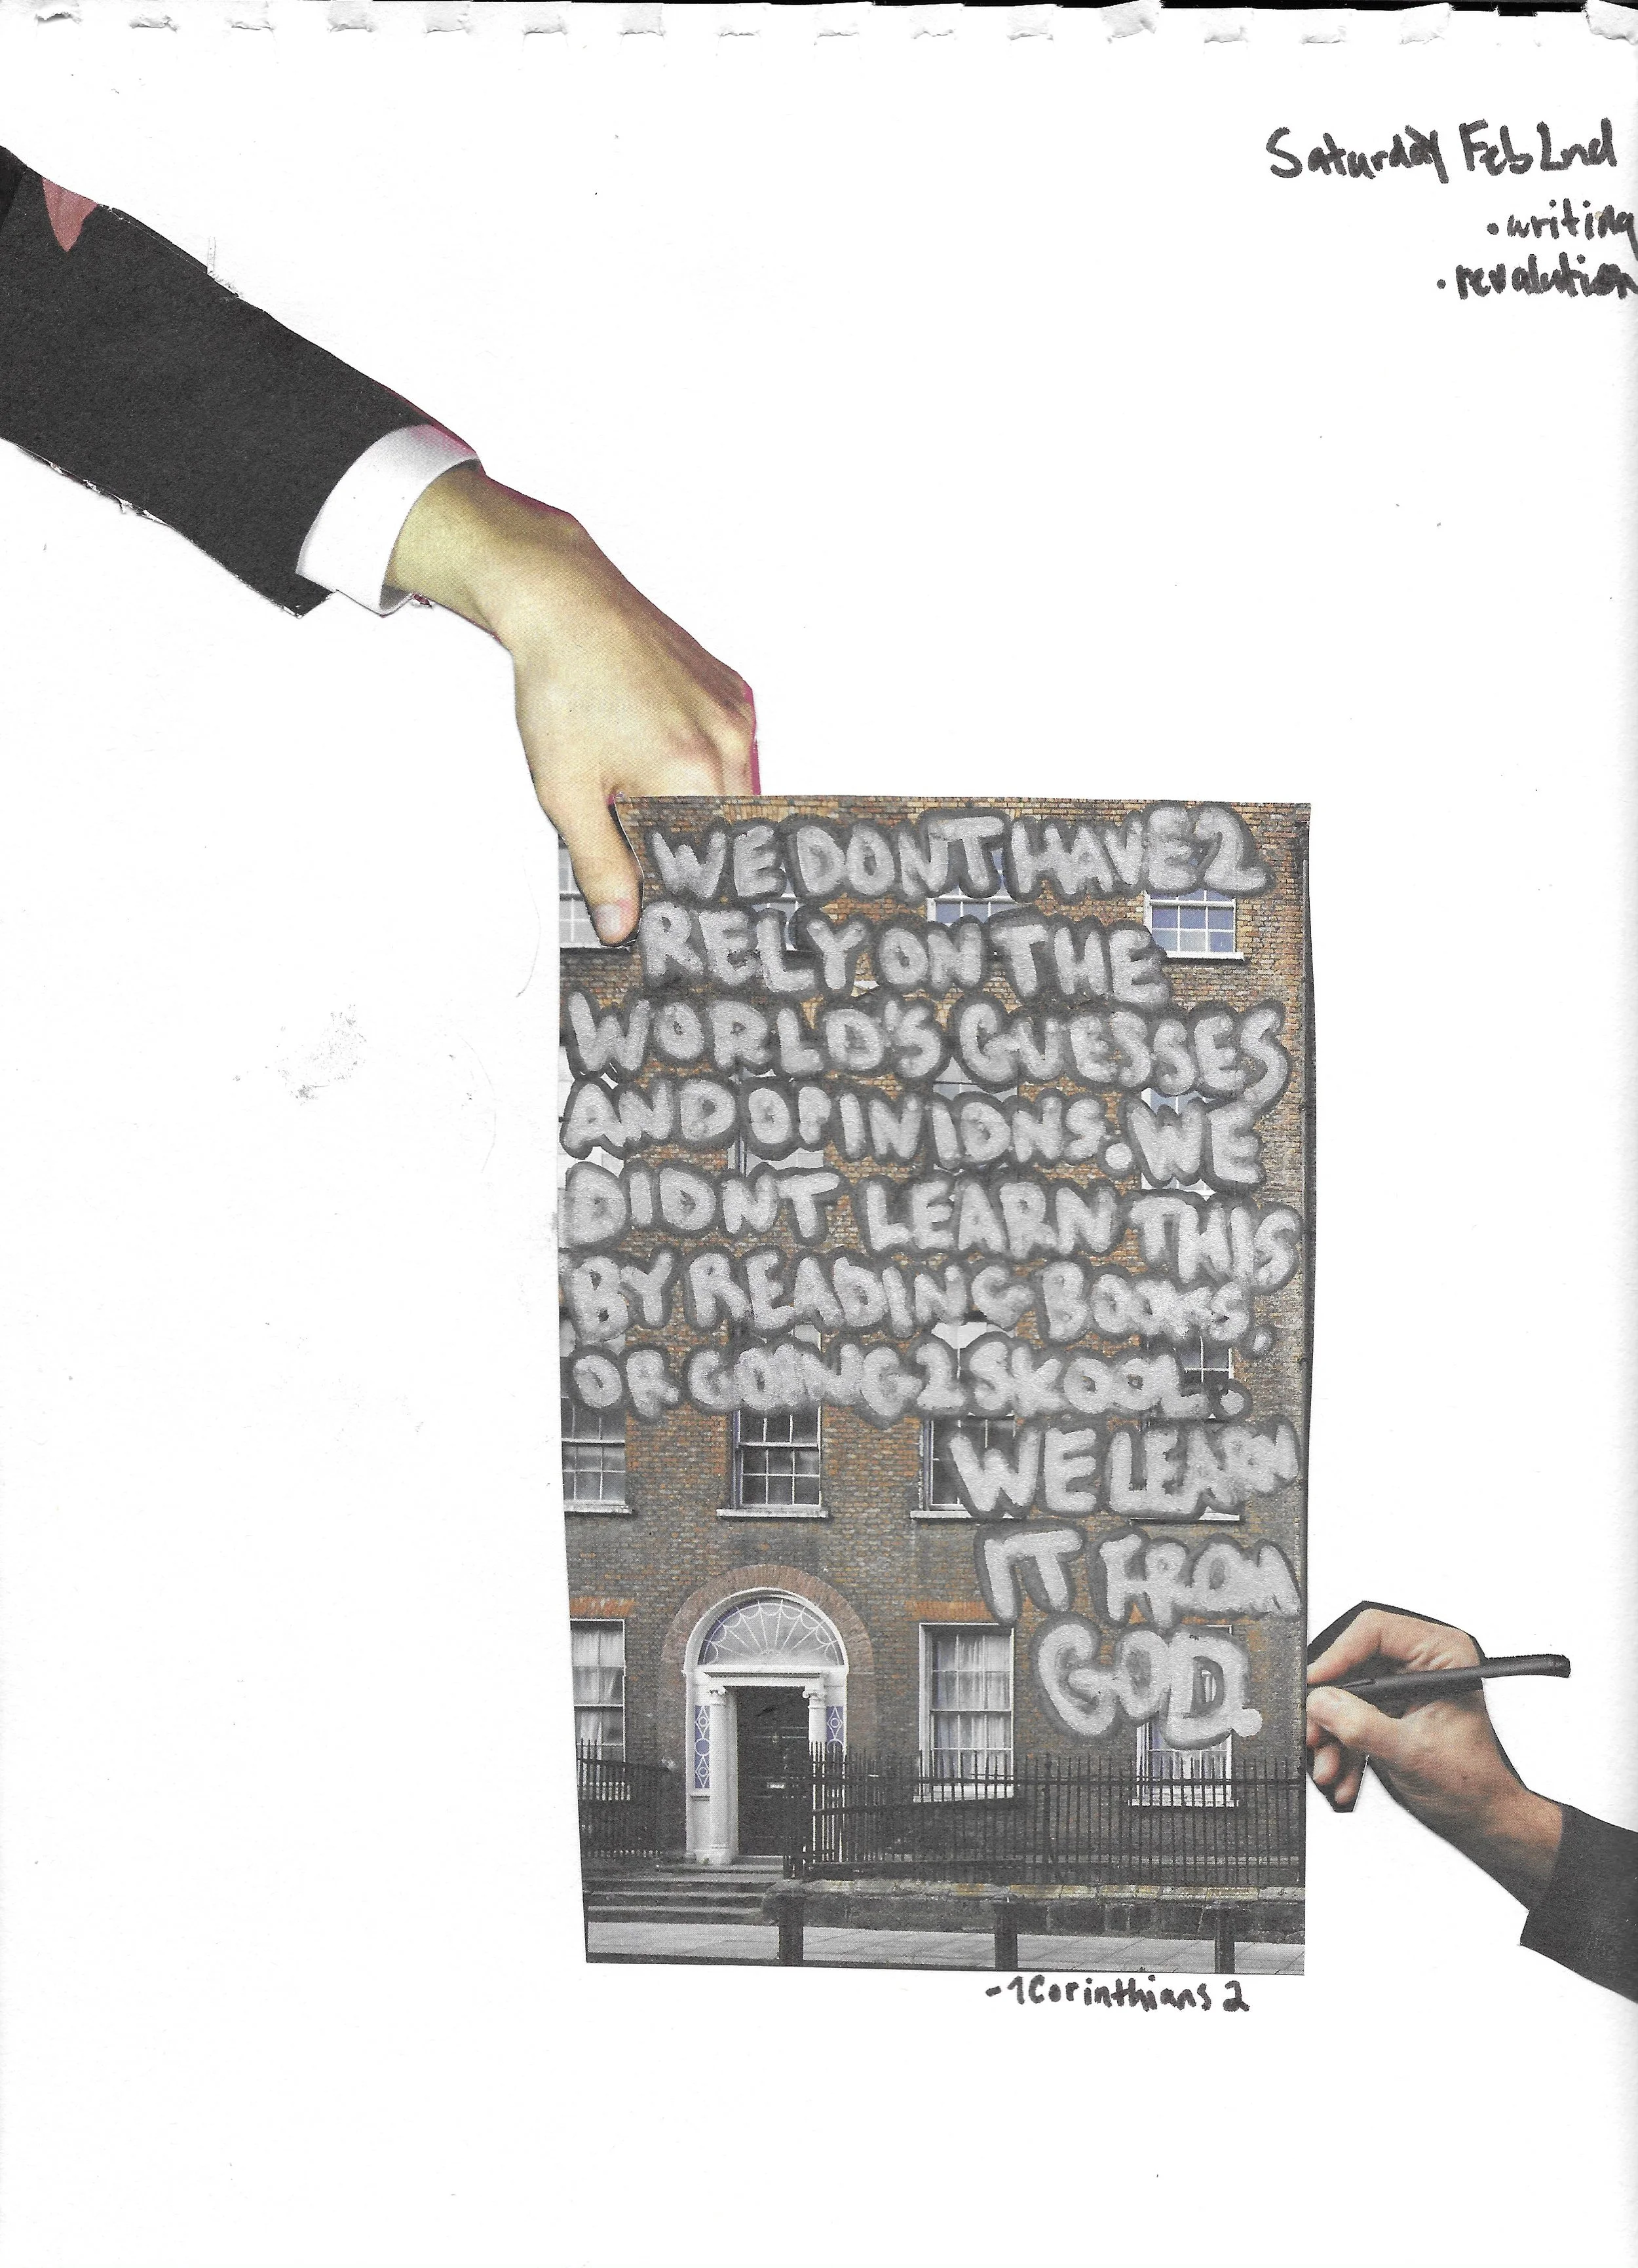 Saturday Feb 2nd
• writing
• revalution
WE DONT HAVE 2
RELY ON THE
WORLD'S GUESSES
AND OPINIONS. WE
DIDNT LEARN THIS
BY READING BOOKS,
OR GOING 2 SKOOL:
WE LEARN
IT FROM
GOD.
-1 Corinthians 2